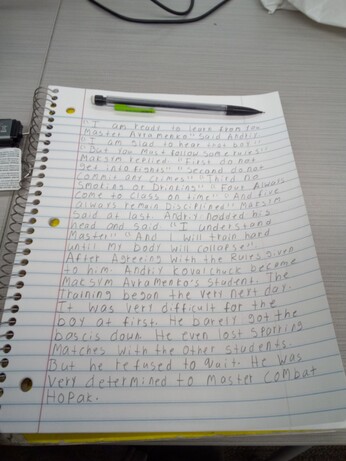 "I am ready to learn from you
Master Avramenko" Said Andriy
"I am glad to hear that boy"
"But you Must follow some rules"
Maksim replied "First do not
Get into fights" "Second do not
Commit any crimes" "Third no
Smoking or Drinking" "Four Always
Come to Class on time" "And five
always remain Disciplined" Maksim
Said at last. Andriy nodded his
head and said "I understand
Master" "And I will train hard
until My body will collapse"
After Agreeing with the Rules given
to him. Andriy Kovalchuck became
Maksym Avramenko's student. The
training began the very next day.
It was very difficult for the
boy at first. He barely got the
bascis down. He even lost sparring
Matches with the other students.
But he refused to quit. He was
very determined to Master Combat
Hopak.